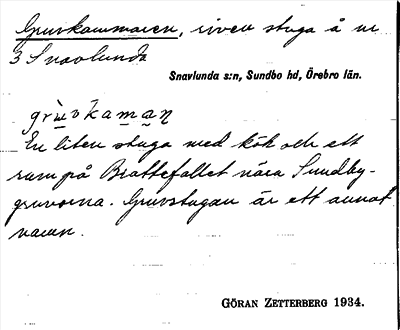 Gruvkammaren, riven stuga å nr
3 Snavlunda
Snavlunda s:n, Sundbo hd, Örebro län.
grù̱vkama̱ṉ
En liten stuga med kök och ett
rum på Brattefallet nära Sundby-
gruvorna. Gruvstugan är ett annat
namn.
GÖRAN ZETTERBERG 1934.